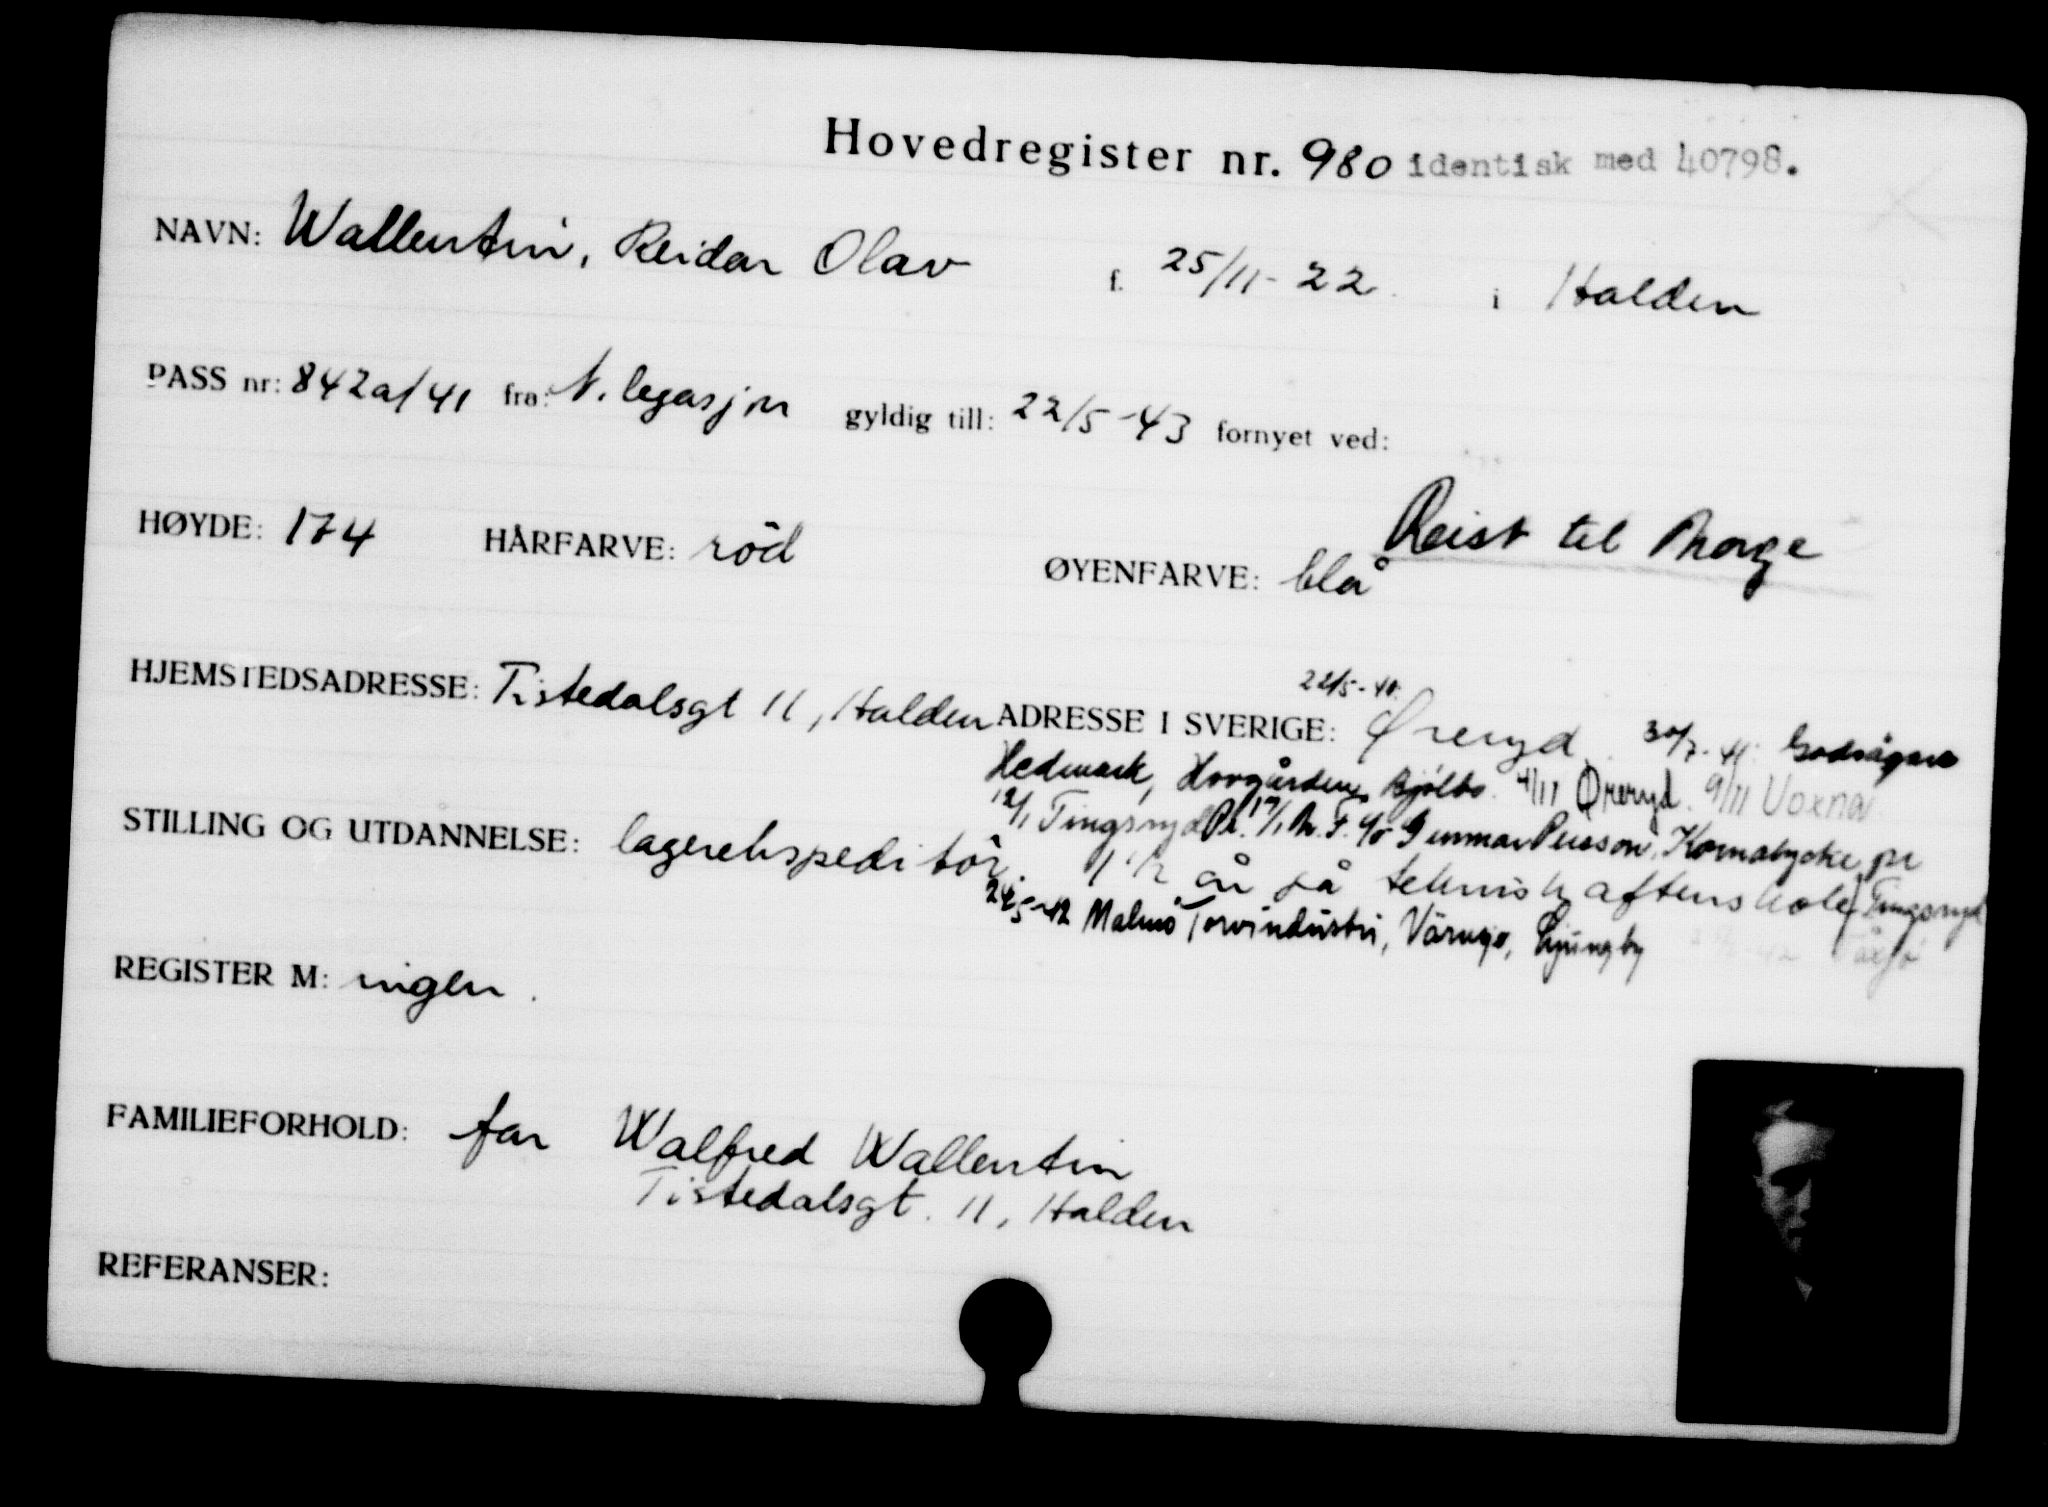 Hovedregister nr. 980 identisk med 40798.
NAVN: Wallentin, Reidar Olav f. 25/11-22 i Halden
PASS nr: 842a/41 fra: N. legasjon gyldig till: 22/5-43 fornyet ved:
Reist til Norge
HØYDE: 174 HÅRFARVE: röd ØYENFARVE: blå
22/5-41.
HJEMSTEDSADRESSE: Tistedalsgt 11, Halden ADRESSE I SVERIGE: Øreryd. 30/7-41: Godsägare
Hedmark, Hovgården, Bjälbo. 4/11 Øreryd. 9/11 Voxna
12/1 Tingsryd Pr. 17/1 N.F. c/o Gunnar Persson, Kornalycke pr
STILLING OG UTDANNELSE: lagerekspeditör. 1 1/2 år på teknisk aftenskole Tingsryd
24/5-42 Malmö Torvindustri, Värnsjö, Ljungby
REGISTER M: ingen.
FAMILIEFORHOLD: far Walfred Wallentin
Tistedalsgt. 11, Halden
REFERANSER: